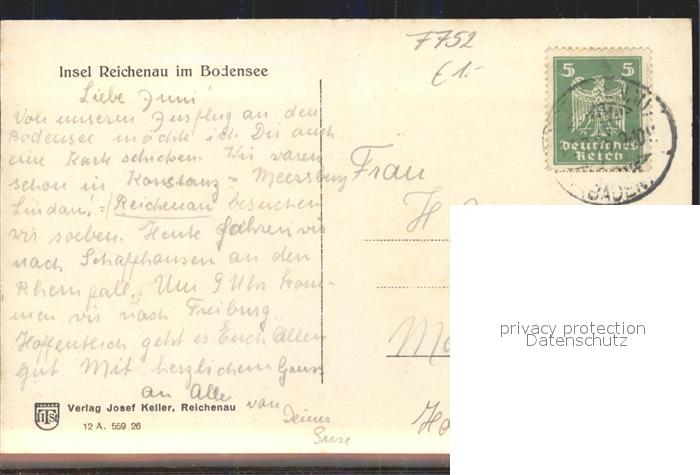 7752
€ 1.-
Insel Reichenau im Bodensee
5 5
Deutsches
Reich
(BADEN)
Liebe
Von unserm Ausflug an den
Bodensee möchte ich Dir auch
eine Karte schicken. Wir waren
schon in Konstanz = Meersburg
Lindau! =/ Reichenau besuchen
wir soeben. Heute fahren wir
nach Schaffhausen an den
Rheinfall. Um 9 Uhr kom-
men wir nach Freiburg.
Hoffentlich geht es Euch Allen
gut. Mit herzlichem Gruss
an Alle
von
Deiner
Suse
Frau
H
M
H
privacy protection
Datenschutz
Verlag Josef Keller, Reichenau
12 A. 559 26